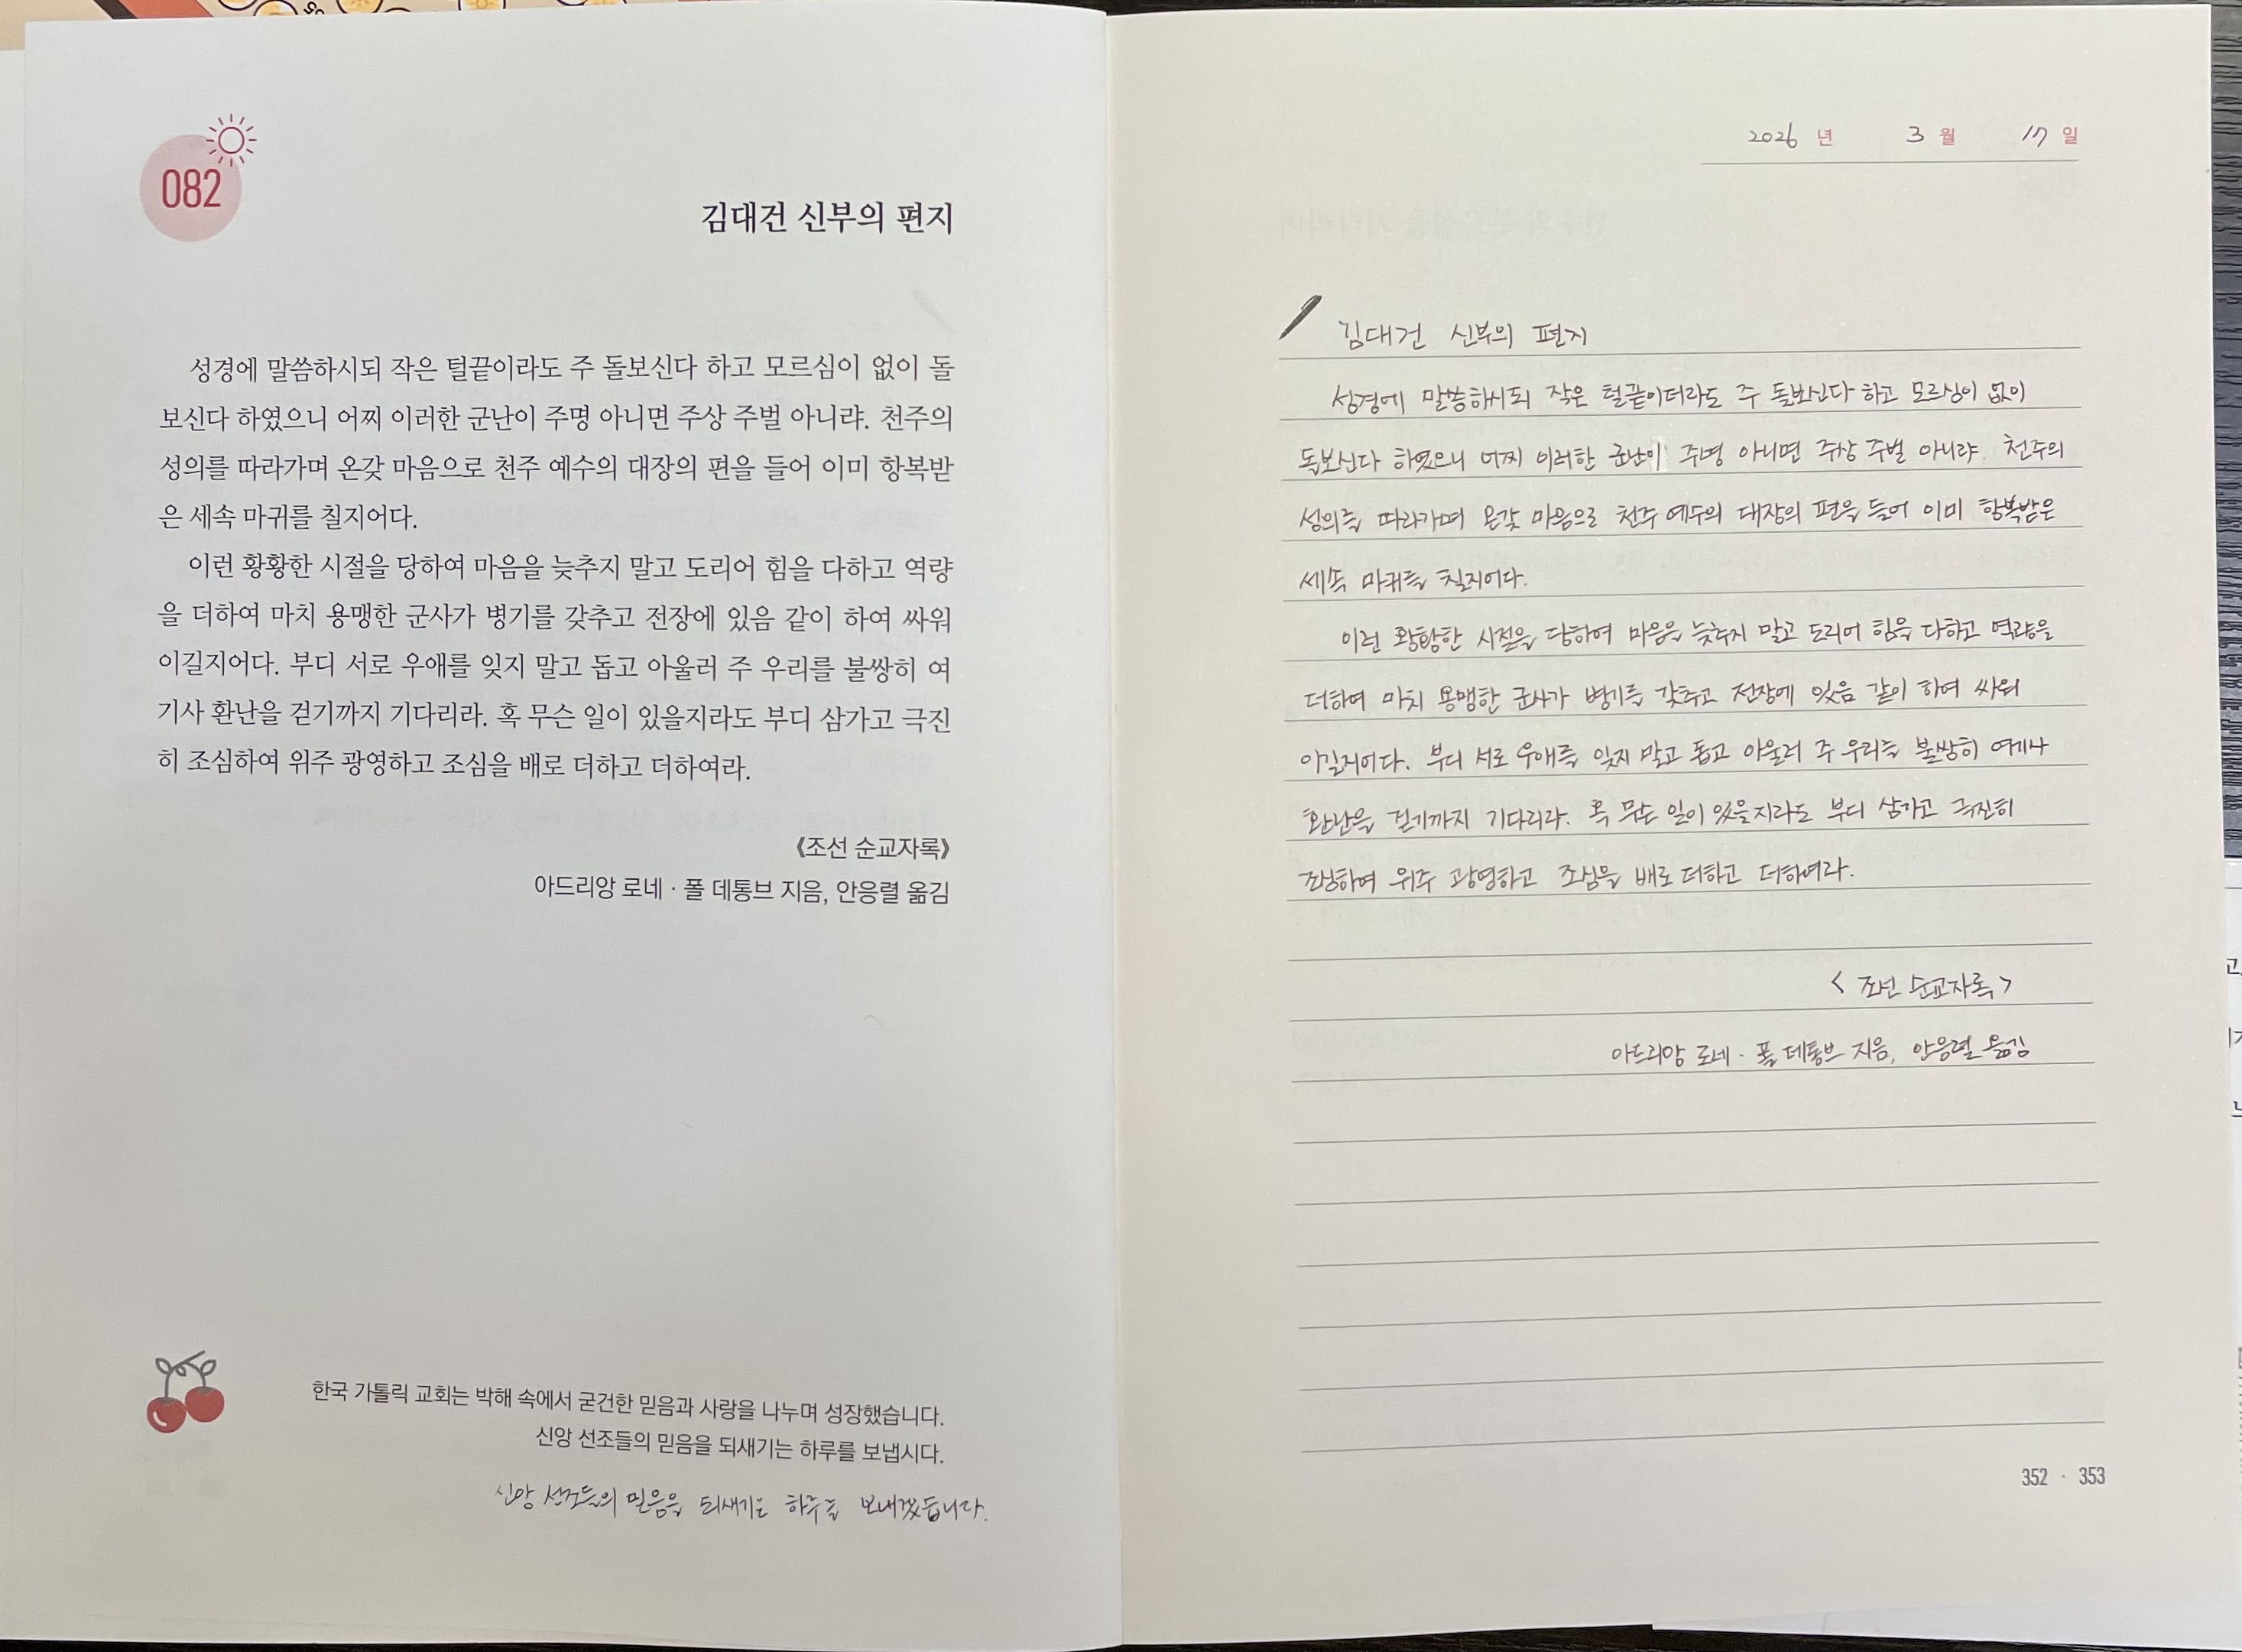 082
김대건 신부의 편지
성경에 말씀하시되 작은 털끝이라도 주 돌보신다 하고 모르심이 없이 돌
보신다 하였으니 어찌 이러한 군난이 주명 아니면 주상 주벌 아니랴. 천주의
성의를 따라가며 온갖 마음으로 천주 예수의 대장의 편을 들어 이미 항복받
은 세속 마귀를 칠지어다.
이런 황황한 시절을 당하여 마음을 늦추지 말고 도리어 힘을 다하고 역량
을 더하여 마치 용맹한 군사가 병기를 갖추고 전장에 있음 같이 하여 싸워
이길지어다. 부디 서로 우애를 잊지 말고 돕고 아울러 주 우리를 불쌍히 여
기사 환난을 걷기까지 기다리라. 혹 무슨 일이 있을지라도 부디 삼가고 극진
히 조심하여 위주 광영하고 조심을 배로 더하고 더하여라.
《조선 순교자록》
아드리앙 로네 · 폴 데통브 지음, 안응렬 옮김
한국 가톨릭 교회는 박해 속에서 굳건한 믿음과 사랑을 나누며 성장했습니다.
신앙 선조들의 믿음을 되새기는 하루를 보냅시다.
신앙 선조들의 믿음을 되새기는 하루를 보내겠습니다.
2026 년 3 월 17 일
김대건 신부의 편지
성경에 말씀하시되 작은 털끝이더라도 주 돌보신다 하고 모르심이 없이
돌보신다 하였으니 어찌 이러한 군난이 주명 아니면 주상 주벌 아니랴. 천주의
성의를 따라가며 온갖 마음으로 천주 예수의 대장의 편을 들어 이미 항복받은
세속 마귀를 칠지어다.
이런 황황한 시절을 당하여 마음을 늦추지 말고 도리어 힘을 다하고 역량을
더하여 마치 용맹한 군사가 병기를 갖추고 전장에 있음 같이 하여 싸워
이길지어다. 부디 서로 우애를 잊지 말고 돕고 아울러 주 우리를 불쌍히
환난을 걷기까지 기다리라. 혹 무슨 일이 있을지라도 부디 삼가고 극진히
하여 위주 광영하고 조심을 배로 더하고 더하여라.
< 조선 순교자록 >
아드리앙 로네 · 폴 데통브 지음, 안응렬 옮김
352 · 353